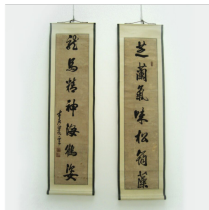 芝蘭氣味松筠操
龍馬精神海鶴姿